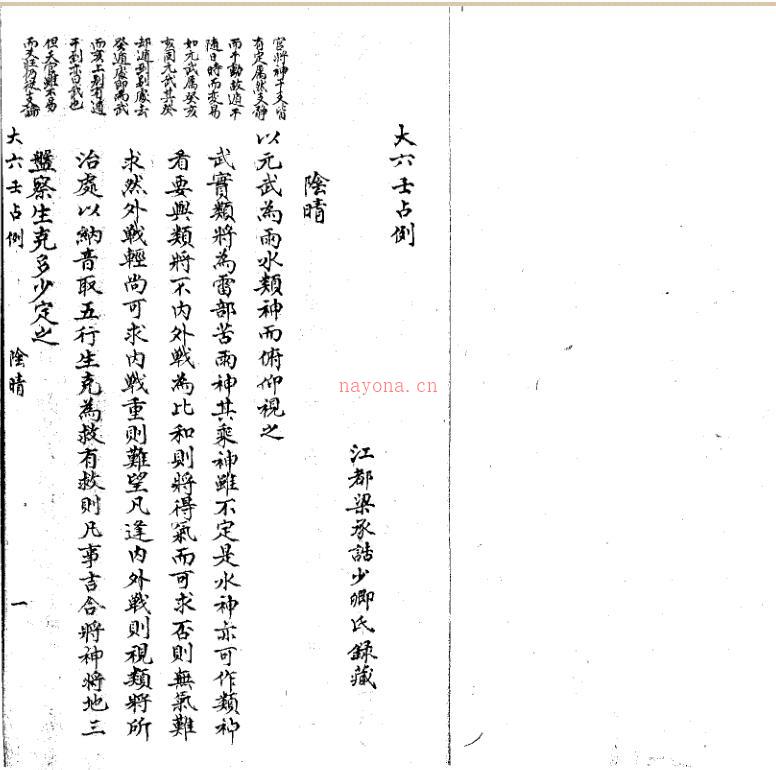 大六壬占例
江都梁承誥少卿氏録藏
陰晴
以元武為雨水類神而俯仰視之
武實類將為雷部苦雨神其乘神雖不定是水神亦可作類神
看要與類將不内外戰為比和則將得氣而可求否則無氣難
求然外戰輕尚可求内戰重則難望凡逢内外戰則視類將所
治處以納音取五行生克為救有救則凡事吉合將神將地三
盤察生克多少定之
官將神干支皆
有定屬然支静
而干動故遁干
隨日時而変易
如元武属癸亥
亥固元武其癸
却遁到别處去
癸遁處即為武
而亥上别有遁
干到亦曰武也
但天官雖不易
而天
仍從支論
大六壬占例
陰晴
一
nayona.cn